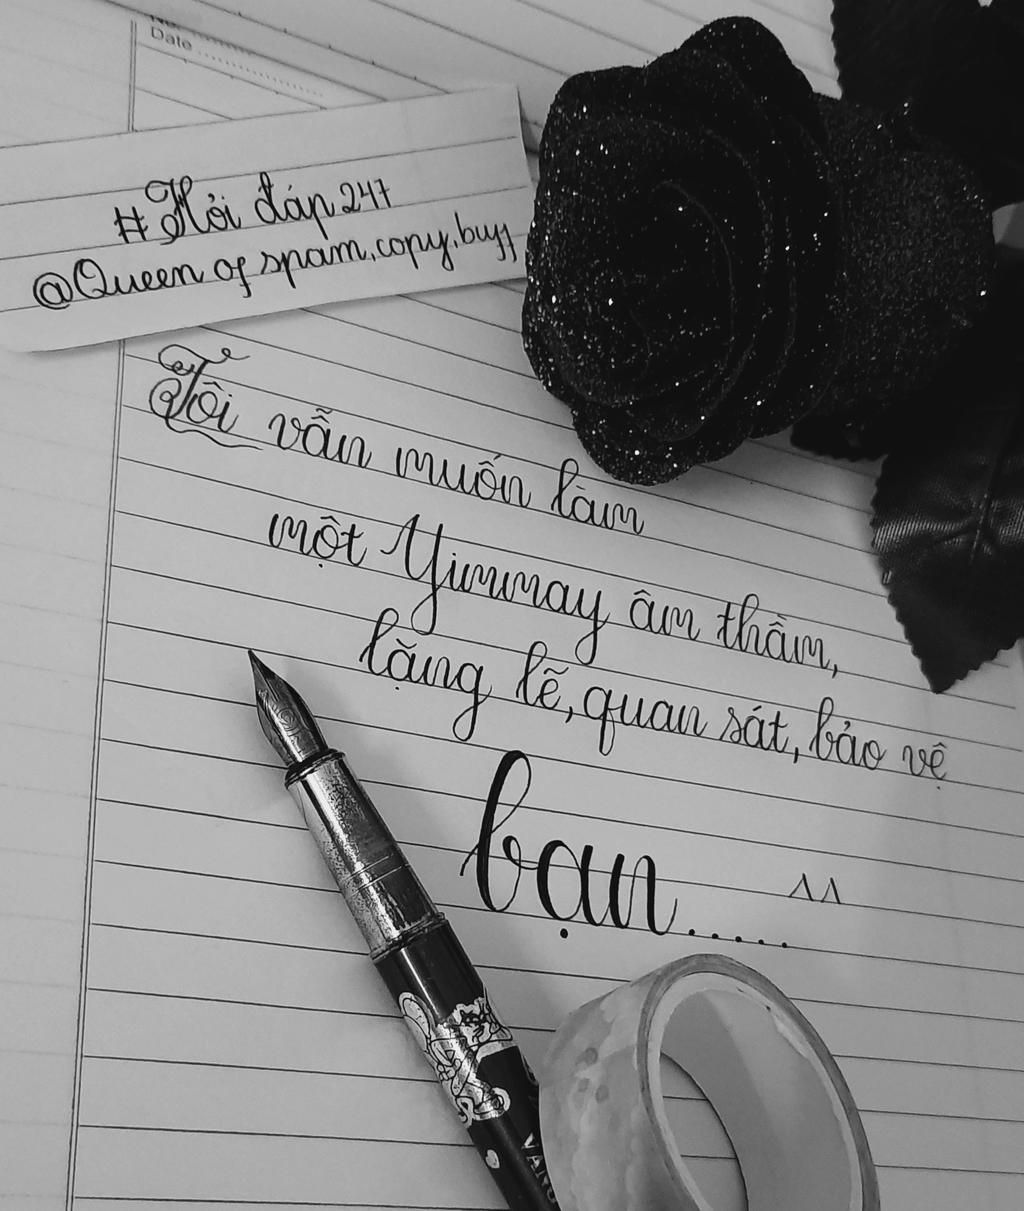 Date
#Hỏi đáp 247
@Queen of spam, copy, buff
Tôi vẫn muốn làm
một Yimmay âm thầm,
lặng lẽ, quan sát, bảo vệ
bạn..... ^^